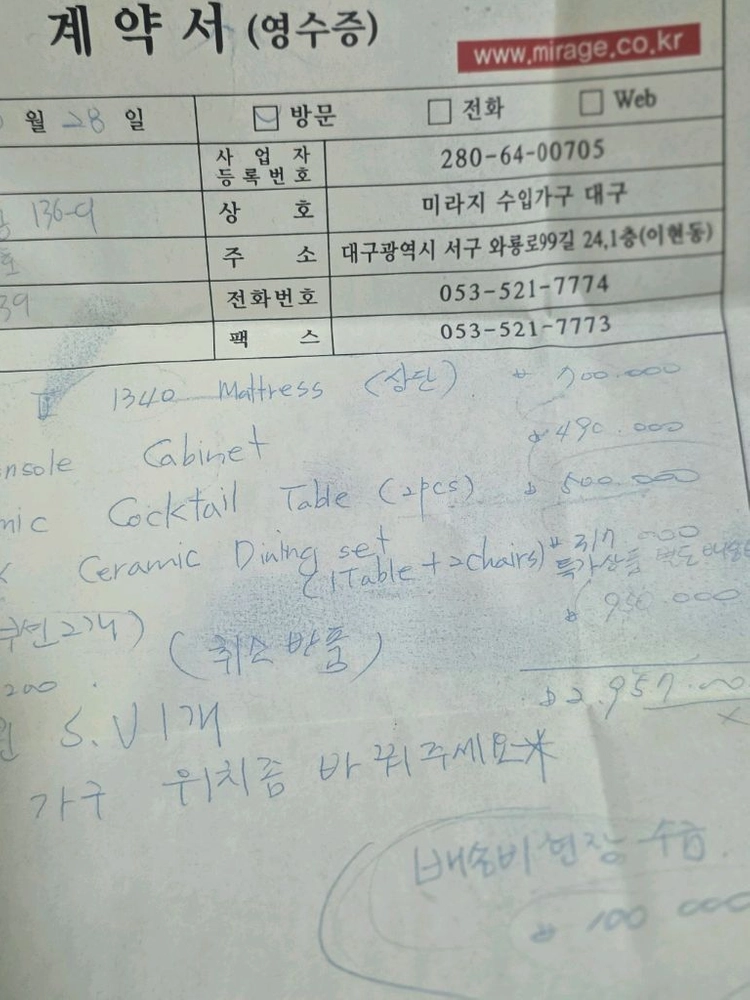 계약서 (영수증)
www.mirage.co.kr
월 28 일 방문 전화 Web
사업자등록번호 280-64-00705
136-9 상호 미라지 수입가구 대구
주소 대구광역시 서구 와룡로99길 24,1층(이현동)
39 전화번호 053-521-7774
팩스 053-521-7773
1340 Mattress (상단) ₩ 700.000
nsole Cabinet ₩490.000
mic Cocktail Table (2pcs) ₩ 500.000
Ceramic Dining set ₩ 317.000
(1Table + 2chairs) 특가상품 별도배송
950.000
쿠션2개)
(취소 반품)
200 ₩2.957.000
S.V 1개
가구 위치좀 바꿔주세요
배송비 현장 수금
₩ 100 000